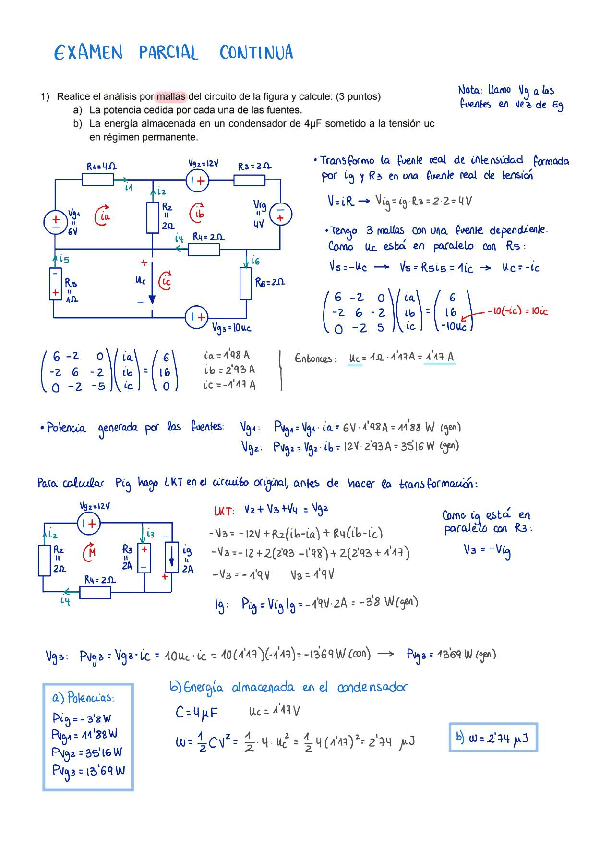 EXAMEN PARCIAL CONTINUA
1) Realice el análisis por mallas del circuito de la figura y calcule: (3 puntos)
a) La potencia cedida por cada una de las fuentes.
b) La energía almacenada en un condensador de 4μF sometido a la tensión uc
en régimen permanente.
Nota: llamo Vg a las
fuentes en vez de Eg
R1=4Ω
i1
Vg2=12V
R3=2Ω
i2
Vg1
=
6V
ia
R2
=
2Ω
ib
Vig
=
4V
i4
R4=2Ω
i5
i6
R5
=
1Ω
uc
ic
R6=2Ω
Vg3=10uc
• Transformo la fuente real de intensidad formada
por ig y R3 en una fuente real de tensión
V=iR → Vig=ig·R3=2·2=4V
• Tengo 3 mallas con una fuente dependiente.
Como uc está en paralelo con R5:
V5=-uc → V5=R5i5=1ic → uc=-ic
( 6 -2 0 ) (ia) ( 6 )
( -2 6 -2 ) (ib) = ( 16 ) -10(-ic)=10ic
( 0 -2 5 ) (ic) ( -10uc )
( 6 -2 0 ) (ia) ( 6 ) ia=1'98 A
( -2 6 -2 ) (ib) = ( 16 ) ib=2'93 A
( 0 -2 -5 ) (ic) ( 0 ) ic=-1'17 A
Entonces: uc=1Ω·1'17A=1'17 A
• Potencia generada por las fuentes: Vg1: PVg1=Vg1·ia=6V·1'98A=11'88 W (gen)
Vg2: PVg2=Vg2·ib=12V·2'93A=35'16 W (gen)
Para calcular Pig hago LKT en el circuito original, antes de hacer la transformación:
Vg2=12V
i2
i3
R2
=
2Ω
M
R3
=
2Ω
ig
=
2A
R4=2Ω
i4
LKT: V2+V3+V4=Vg2
-V3=-12V+R2(ib-ia)+R4(ib-ic)
-V3=-12+2(2'93-1'98)+2(2'93+1'17)
-V3=-1'9V V3=1'9V
Ig: Pig=Vig Ig=-1'9V·2A=-3'8 W (gen)
Como ig está en
paralelo con R3:
V3=-Vig
Vg3: PVg3=Vg3·ic=10uc·ic=10(1'17)(-1'17)=-13'69 W (con) → PVg3=13'69 W (gen)
a) Potencias:
Pig=-3'8 W
PVg1=11'88 W
PVg2=35'16 W
PVg3=13'69 W
b) Energía almacenada en el condensador
C=4μF uc=1'17V
w=1/2 CV²=1/2·4·uc²=1/2 4(1'17)²=2'74 μJ
b) w=2'74 μJ